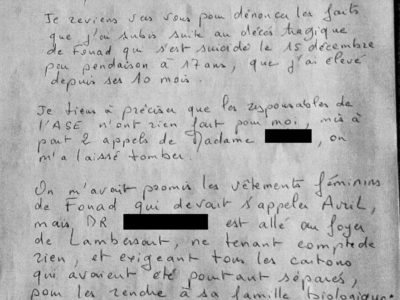 Je reviens vers vous pour dénoncer les faits
que j'ai subis suite au décès tragique
de Fouad qui s'est suicidé le 15 décembre
par pendaison à 17 ans, que j'ai élevé
depuis ses 10 mois.
Je tiens à préciser que les responsables de
l'ASE n'ont rien fait pour moi, mis à
part 2 appels de Madame , on
m'a laissé tomber.
On m'avait promis les vêtements féminins
de Fouad qui devait s'appeler Avril,
mais DR est allé au foyer
de Lambersart, ne tenant compte de
rien, et exigeant tous les cartons
qui avaient été pourtant séparés,
pour les rendre à sa famille biologique